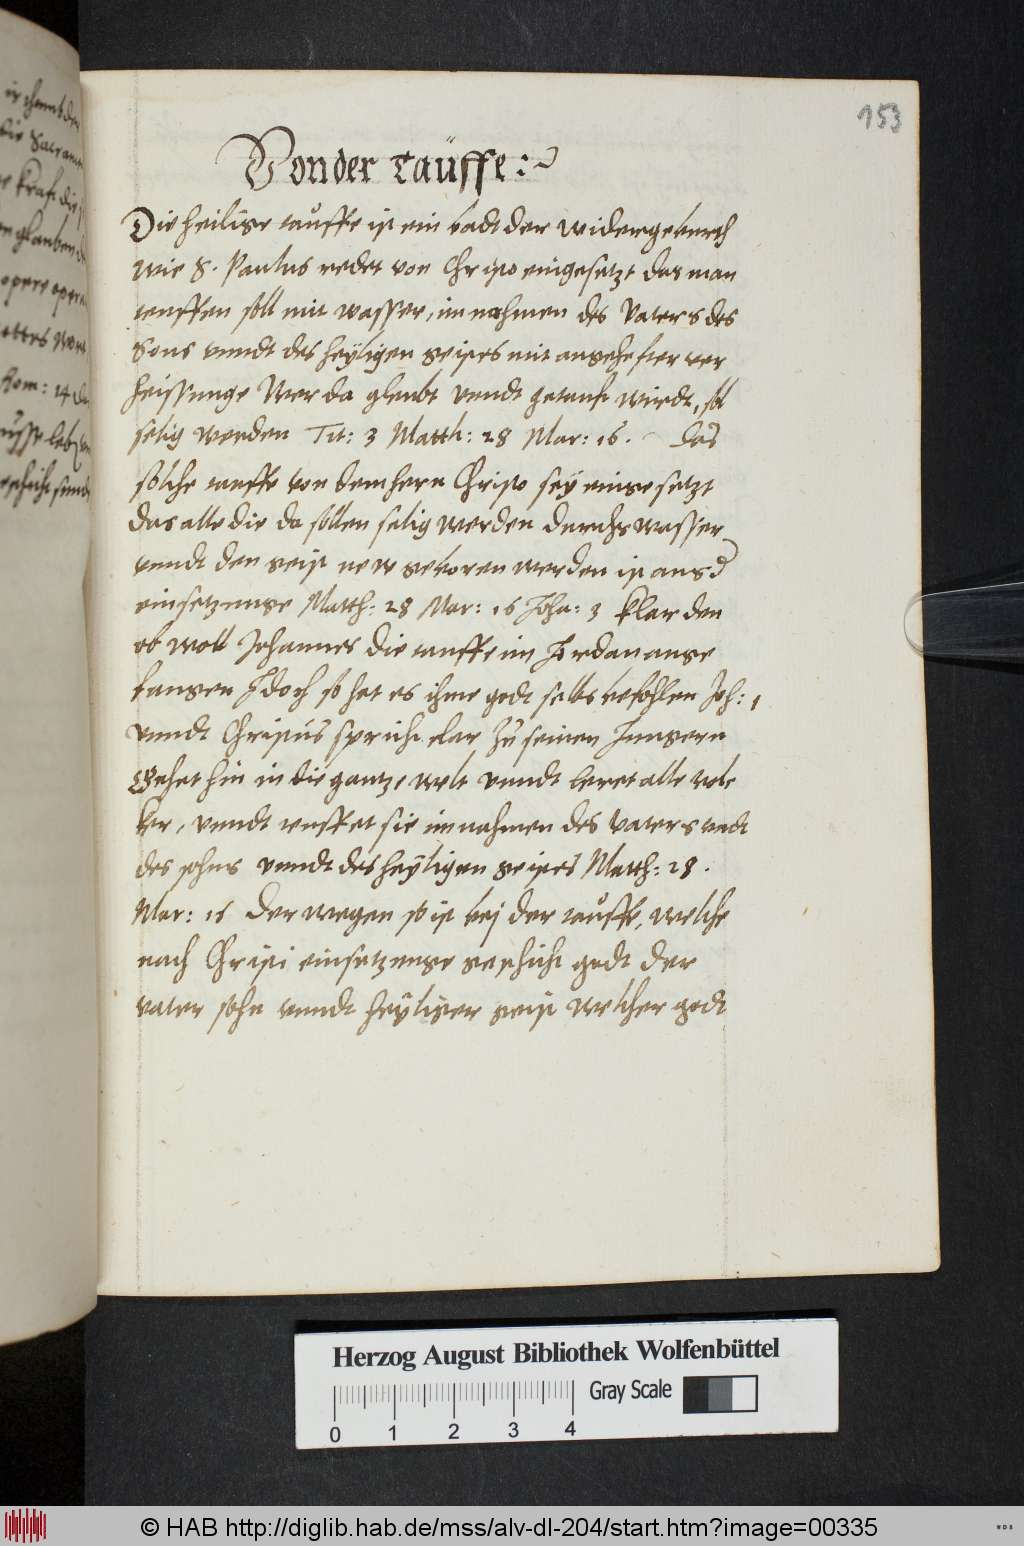 153
Von der Tauffe :~
Die heilige tauffe ist ein badt der widergeburth
wie S. Paulus redet von Christo eingesetzt das man
teuffen soll mit wasser, im nahmen des Vaters des
Sons vnndt des heÿligen geistes mit angehefter ver
heissunge Wer da gleubt vnndt getauft wirdt, sol
selig werden Tit: 3 Matth: 28 Mar: 16. Das
solche tauffe von dem hern Christo seÿ eingesetzt
das alle die da sollen selig werden durchs wasser
vnndt den geist new geboren werden ist aus d
einsetzunge Matth: 28 Mar: 16 Joha: 3 klar den
ob woll Johannes die tauffe im Jordan ange
fangen Jdoch so hat es ihme godt selbs befohlen Joh: 1
vnndt Christus spricht clar zu seinen Jungern
Gehet hin in die gantze welt vnndt leret alle vol
ker, vnndt teuffet sie im nahmen des Vaters vndt
des sohns vnndt des heÿligen geistes Matth: 28.
Mar: 16 Derwegen so ist bej der tauffe, welche
nach Christi einsetzunge geschicht godt der
vater sohn vnndt heÿliger geist welcher godt
die Sacramen
kraft die
glauben
opere opera
Rom: 14
geschicht sunde
Herzog August Bibliothek Wolfenbüttel
Gray Scale
0 1 2 3 4
© HAB http://diglib.hab.de/mss/alv-dl-204/start.htm?image=00335